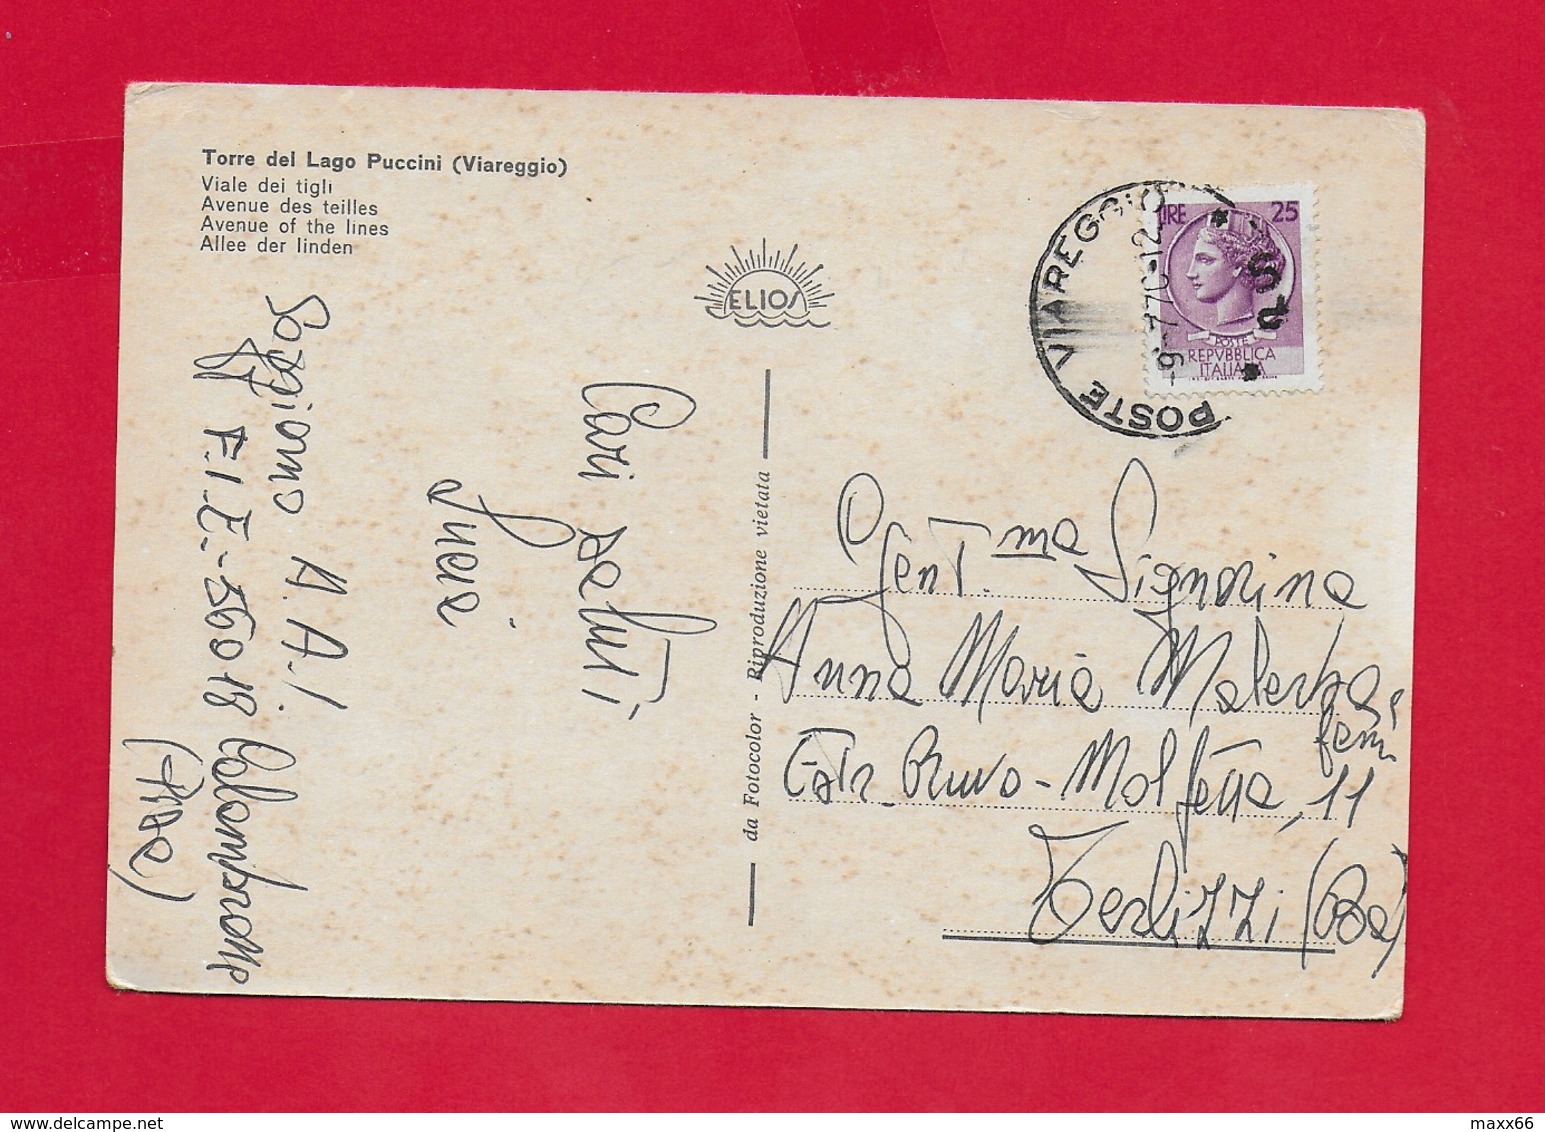 Torre del Lago Puccini (Viareggio)
Viale dei tigli
Avenue des teilles
Avenue of the lines
Allee der linden
ELIOS
da Fotocolor - Riproduzione vietata
POSTE VIAREGGIO
-9-7.70-12
LIRE 25
POSTE
REPVBBLICA
ITALIANA
Cari saluti
A.A.
F.I.E. - 56018 Calambrone
(Pisa)
Gent.ma Signorina
Anna Maria Malerba
Estr. Ruvo - Molfetta, 11
Terlizzi (Ba)
maxx66